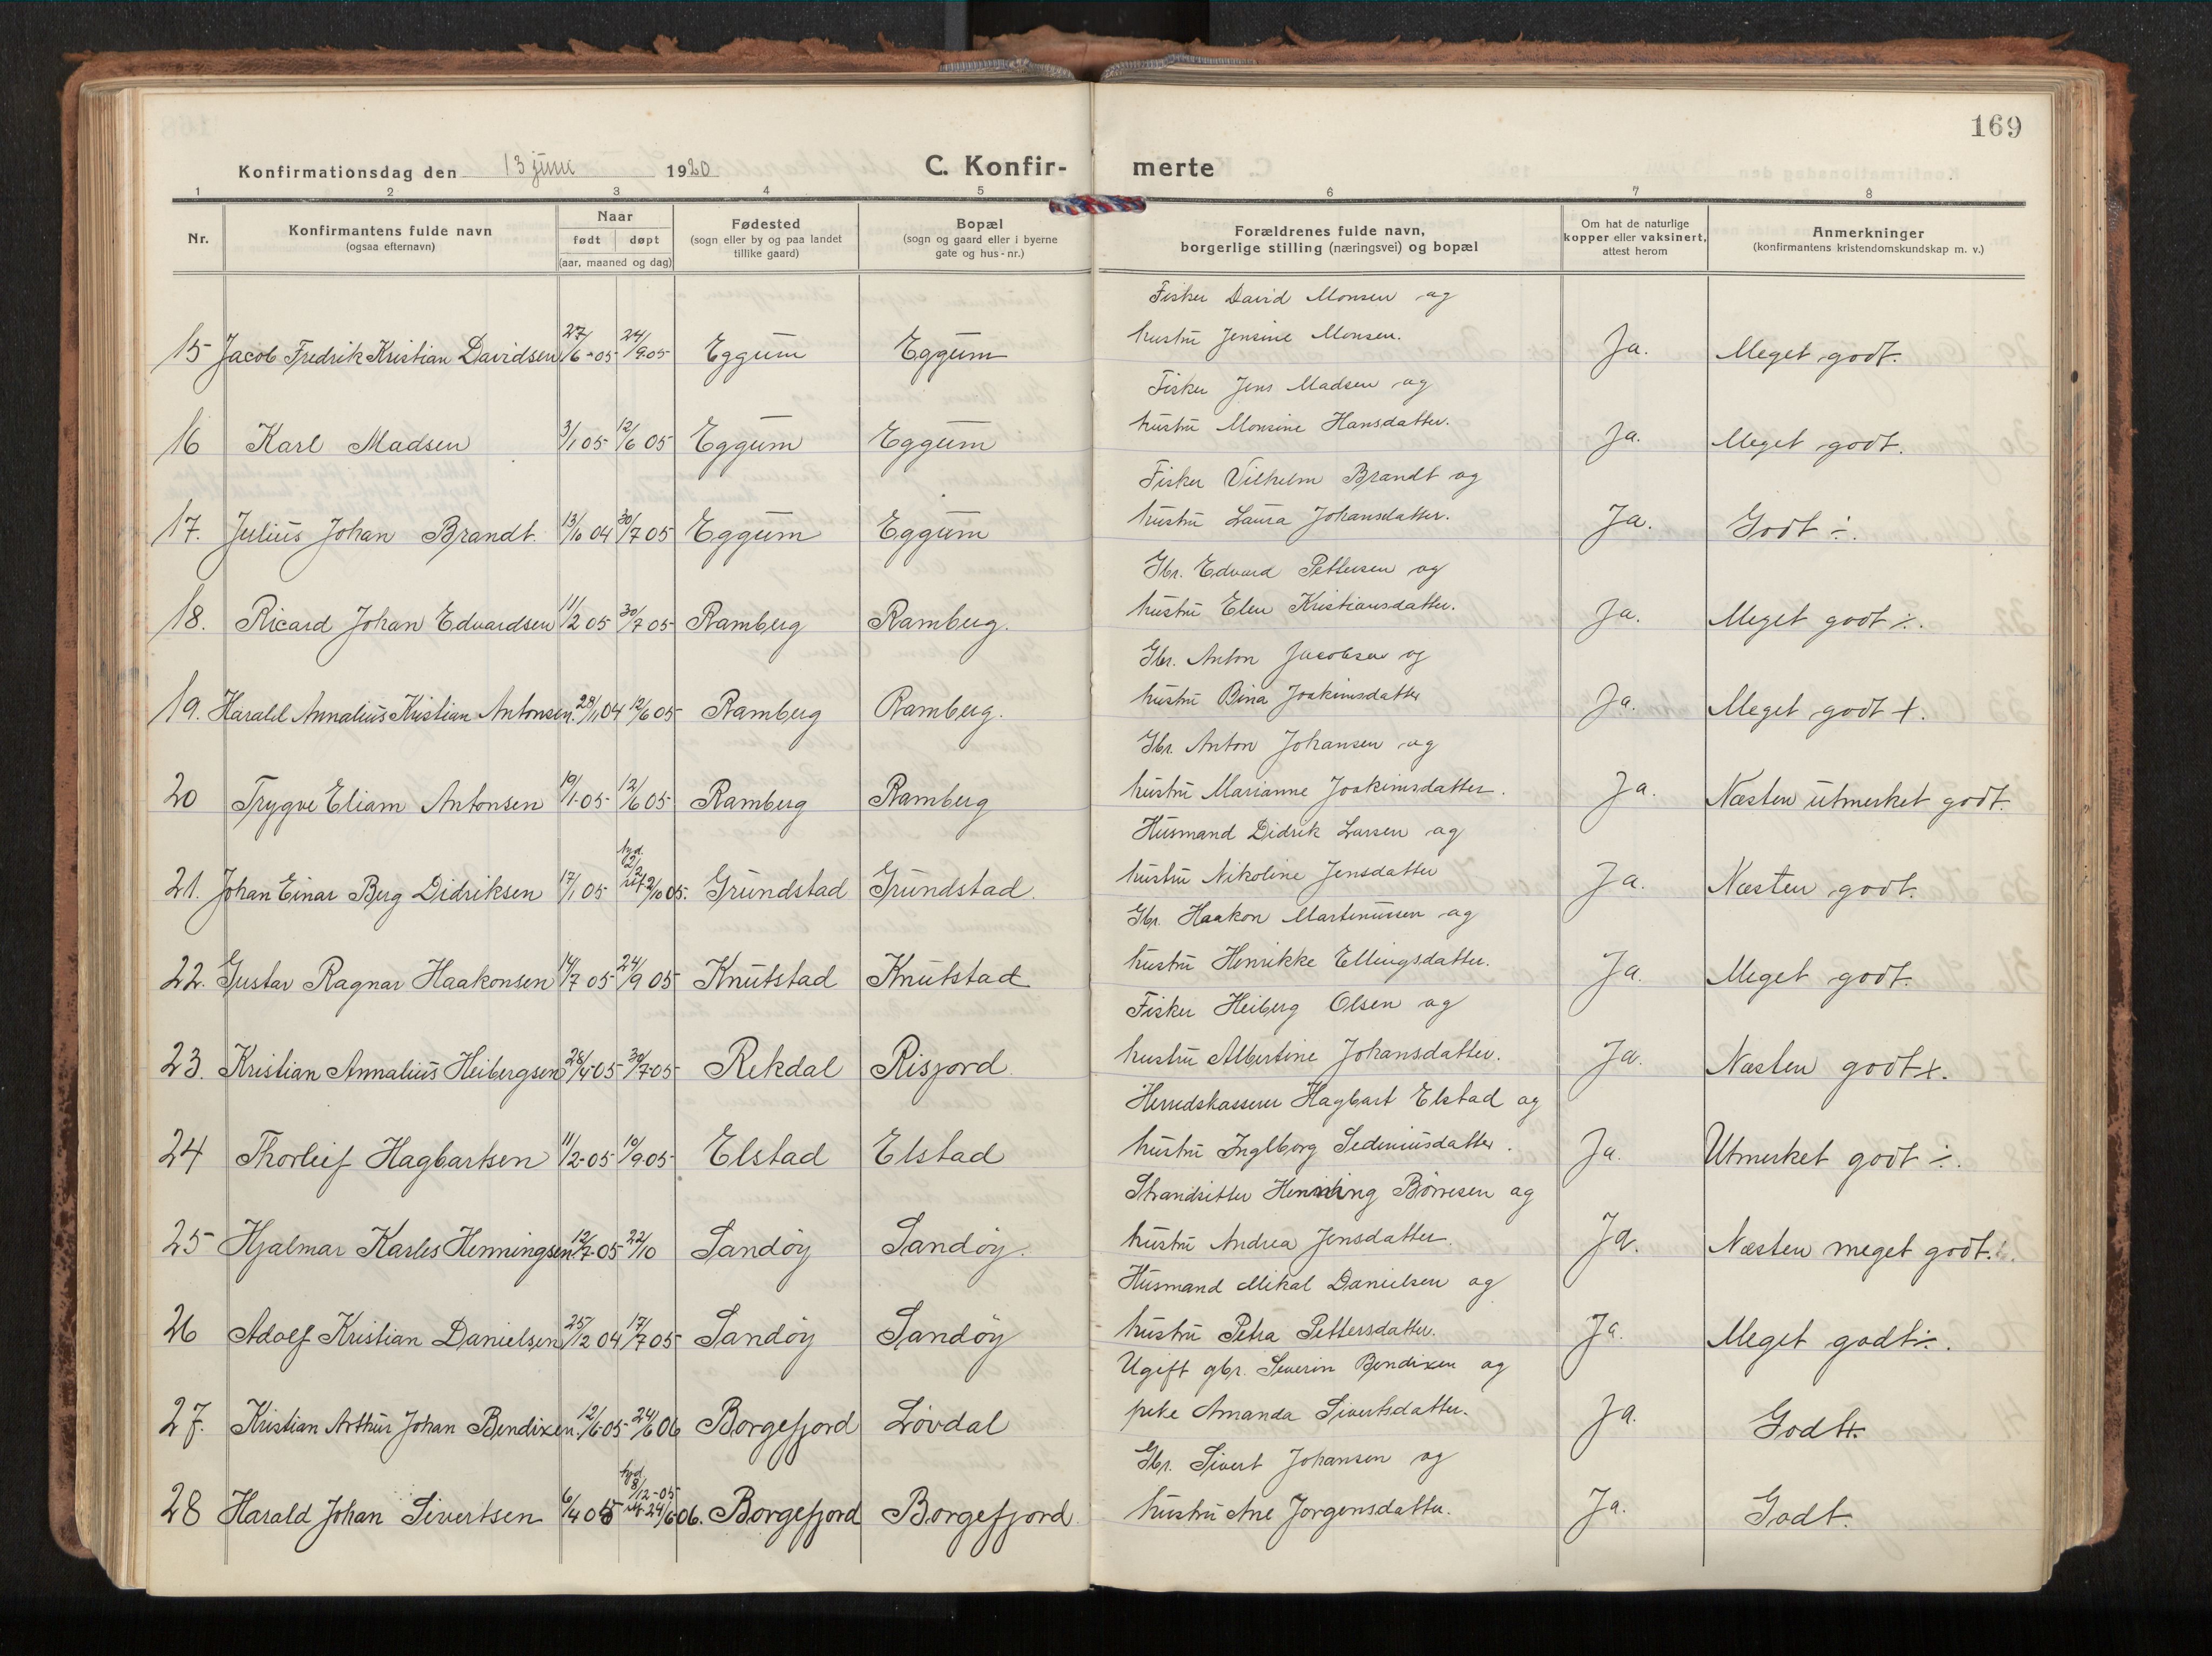 169
Konfirmationsdag den 13 juni 1920
C. Konfir- merte
1 2 3 4 5 6 7 8
Nr.
Konfirmantens fulde navn
(ogsaa efternavn)
Naar
født døpt
(aar, maaned og dag)
Fødested
(sogn eller by og paa landet
tillike gaard)
Bopæl
(sogn og gaard eller i byerne
gate og hus-nr.)
Forældrenes fulde navn,
borgerlige stilling (næringsvei) og bopæl
Om hat de naturlige
kopper eller vaksinert,
attest herom
Anmerkninger
(konfirmantens kristendomskundskap m. v.)
Fisker David Monsen og
15 Jacob Fredrik Kristian Davidsen 27/6-05 24/9 05 Eggum Eggum hustru Jensine Monsen. Ja. Meget godt.
Fisker Jens Madsen og
16 Karl Madsen 3/1 05 12/6 05 Eggum Eggum hustru Monsine Hansdatter. Ja. Meget godt.
Fisker Vilhelm Brandt og
17. Julius Johan Brandt. 13/10 04 30/7 05 Eggum Eggum hustru Laura Johansdatter. Ja. Godt ÷.
Gbr. Edvard Pettersen og
18. Ricard Johan Edvardsen 11/2 05 30/7 05 Ramberg Ramberg. hustru Elen Kristiansdatter. Ja. Meget godt ÷.
Gbr. Anton Jacobsen og
19. Harald Annalius Kristian Antonsen. 28/11 04 12/6 05 Ramberg Ramberg. hustru Bina Joakimsdatter Ja. Meget godt +.
Gbr. Anton Johansen og
20 Trygve Eliam Antonsen 19/1-05 12/6 05 Ramberg Ramberg hustru Marianne Joakimsdatter. Ja. Næsten utmerket godt.
Husmand Didrik Larsen og
21. Johan Einar Berg Didriksen 17/1 05 2/10 05. Grundstad Grundstad. hustru Nikoline Jensdatter Ja. Næsten godt.
Gbr. Haakon Martinussen og
22. Gustav Ragnar Haakonsen 14/7 05 24/9 05 Knutstad Knutstad hustru Henrikke Ellingsdatter. Ja. Meget godt.
Fisker Heiberg Olsen og
23. Kristian Annalius Heibergsen 28/4-05 30/7-05 Rekdal Risjord. hustru Albertine Johansdatter. Ja. Næsten godt +.
Herredskasserer Hagbart Elstad og
24 Thorleif Hagbartsen 11/2-05 10/9-05 Elstad Elstad hustru Ingleborg Sedeniusdatter. Ja. Utmerket godt ÷.
Strandsitter Henning Børresen og
25 Hjalmar Karles Henningsen 12/7-05 22/10 Sandøy Sandøy. hustru Andrea Jensdatter. Ja. Næsten meget godt.
Husmand Mikal Danielsen og
26 Adolf Kristian Danielsen 25/12 04 17/7 05 Sandøy Sandøy hustru Petra Pettersdatter. Ja. Meget godt ÷.
Ugift gbr. Severin Bendixen og
27. Kristian Arthur Johan Bendixen. 12/6-05 24/6 06 Borgefjord Løvdal pike Amanda Sivertsdatter. Ja. Godt +.
Gbr. Sivert Johansen og
28 Harald Johan Sivertsen 6/4 05 8/12-05 24/6 06. Borgefjord Borgefjord hustru Ane Jørgensdatter. Ja. Godt.